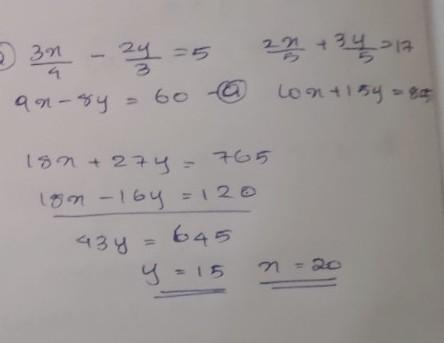 3x/4 - 2y/3 = 5    2x/5 + 3y/5 = 17
9x - 8y = 60 - a    10x + 15y = 85
18x + 27y = 765
18x - 16y = 120
43y = 645
y = 15    x = 20